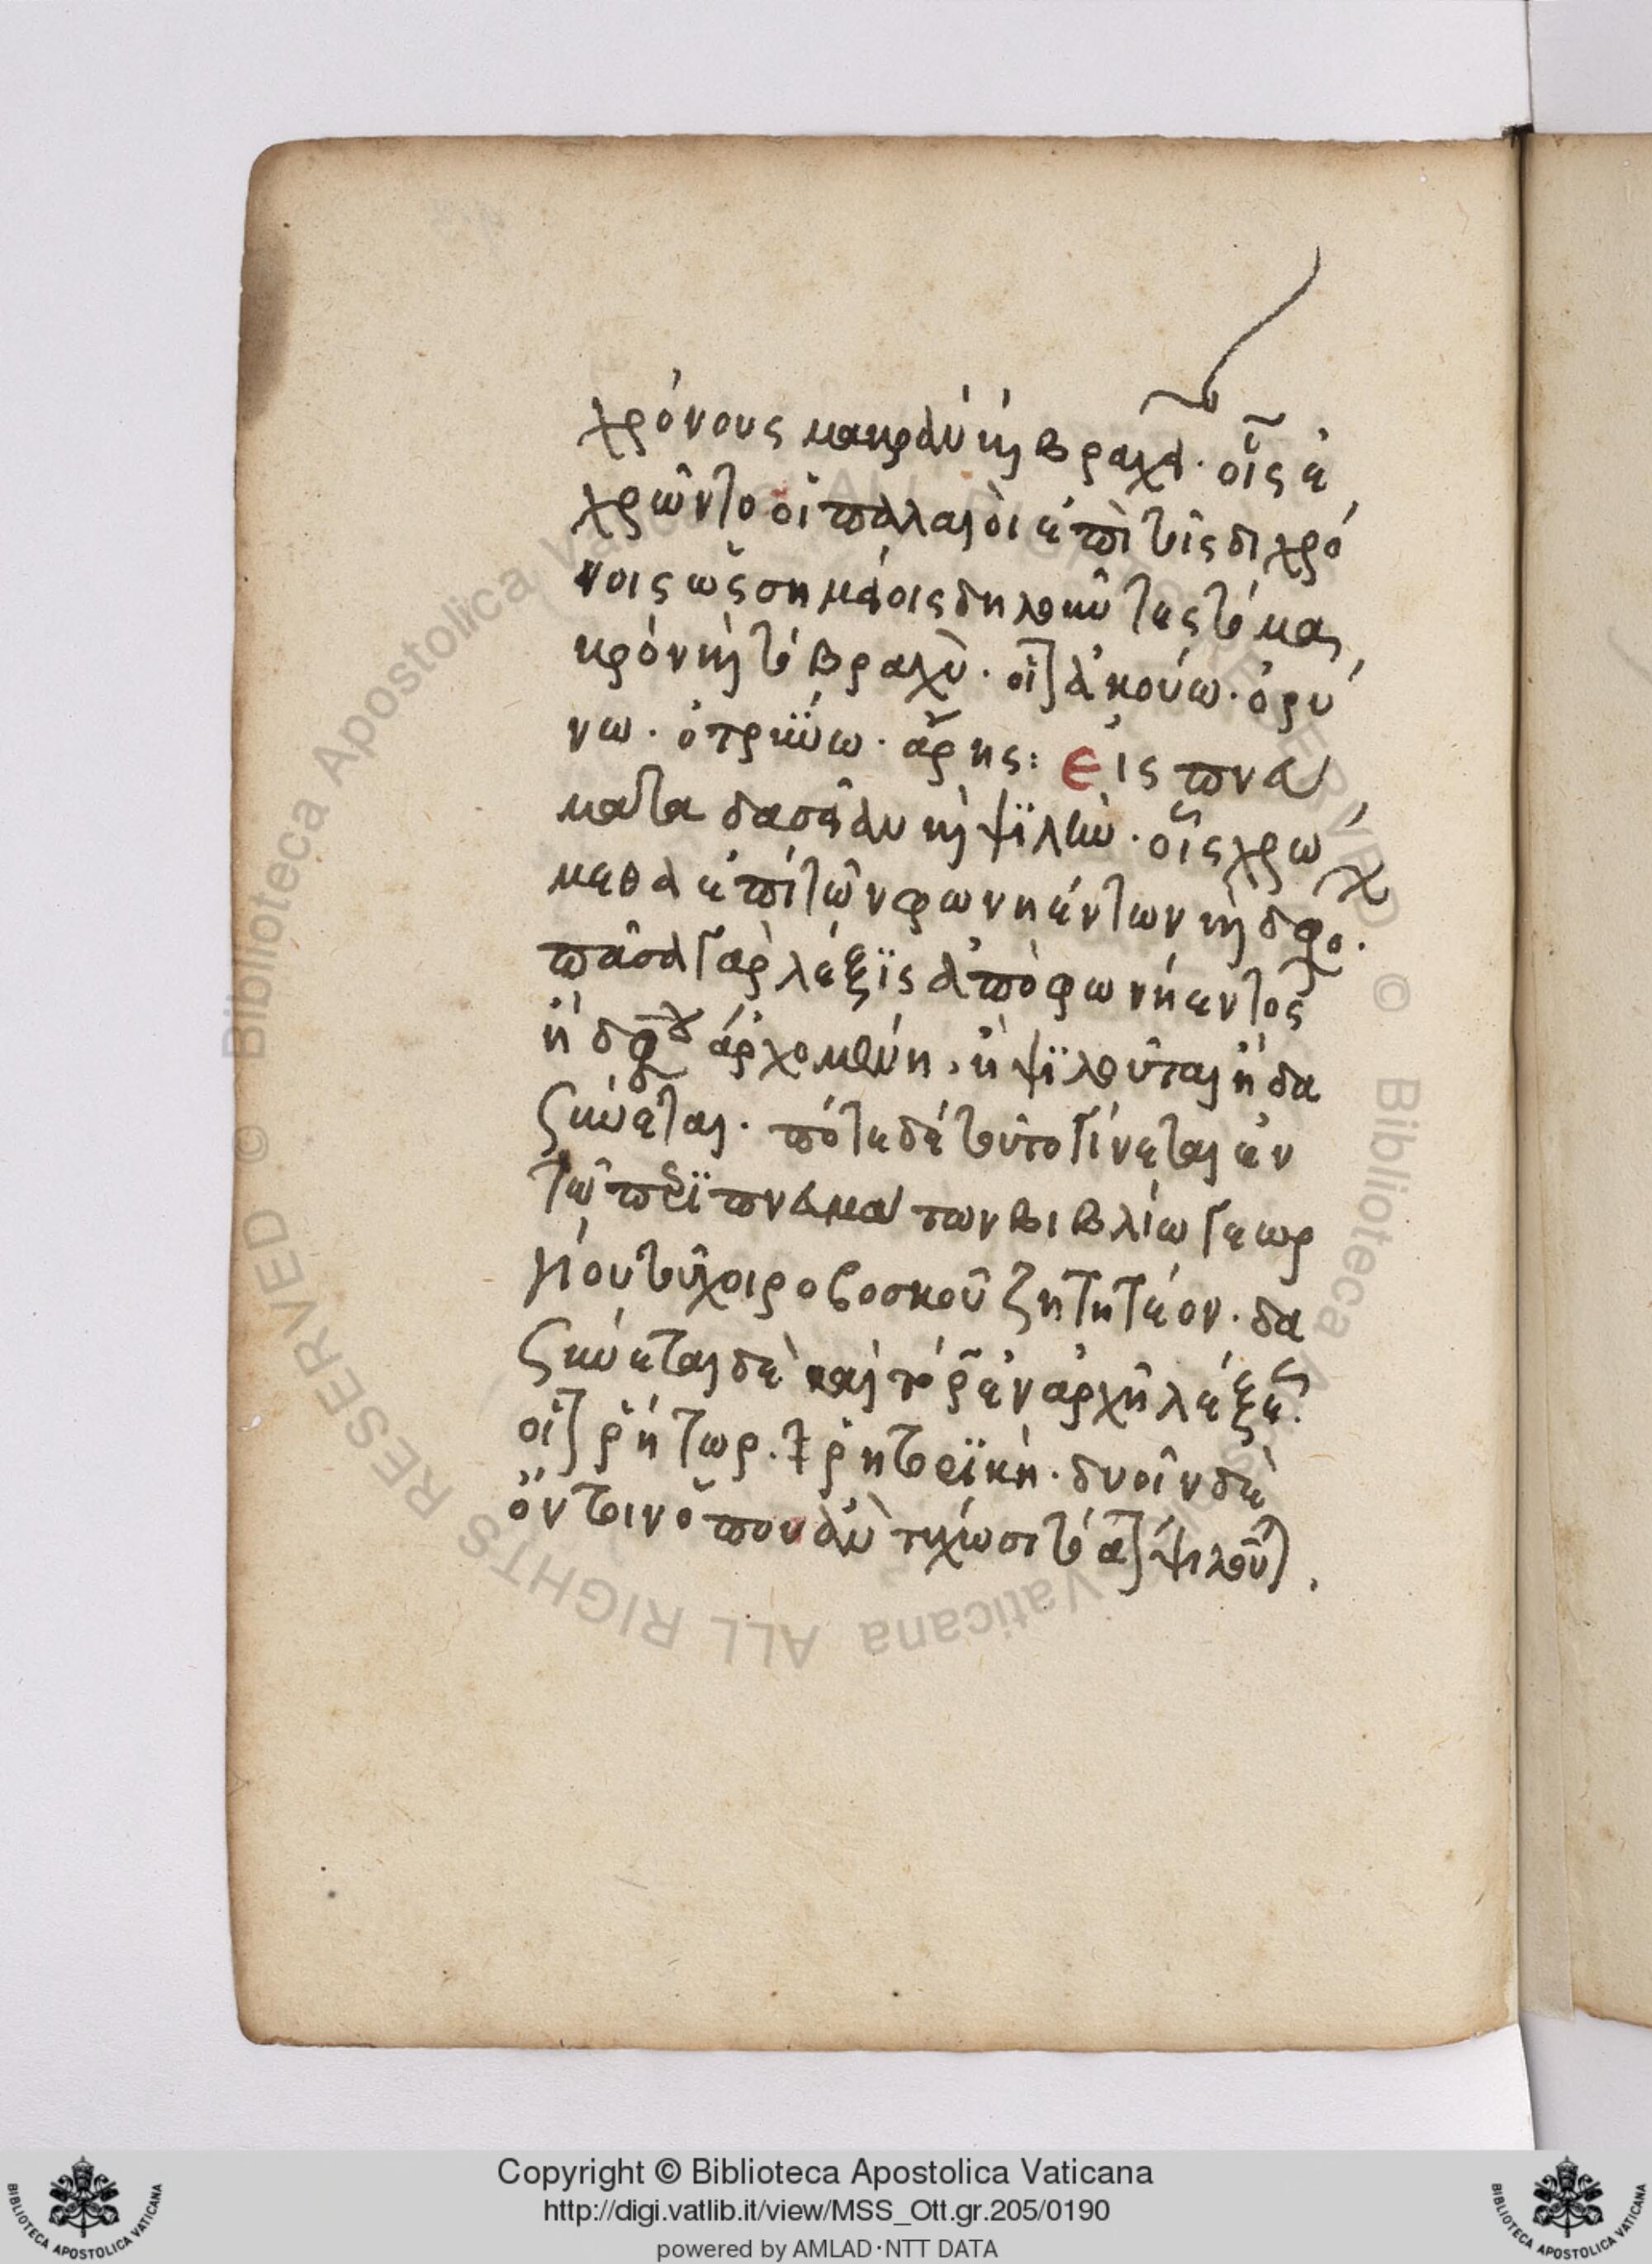 χρόνους μακρὰν καὶ βραχεῖαν. οἷς ἐ
χρῶντο οἱ παλαιοὶ ἐπὶ τοῖς διχρό
νοις ὡς σημείοις δηλοῦντες τὸ μα
κρὸν καὶ τὸ βραχὺ. οἷον ἀκούω. ὀρύ
νω. ὀτρύνω. ἄρης: Εἰς πνεύ
ματα δασεῖαν καὶ ψιλὴν. οἷς χρώ
μεθα ἐπὶ τῶν φωνηέντων καὶ διφθόγγων.
πᾶσα γὰρ λέξις ἀπὸ φωνήεντος
ἢ διφθόγγου ἀρχομένη, ἢ ψιλοῦται ἢ δα
σύνεται. πότε δὲ τοῦτο γίνεται ἐν
τῷ περὶ πνευμάτων βιβλίω γεωρ
γίου τοῦ χοιροβοσκοῦ ζητητέον. δα
σύνεται δὲ καὶ τὸ ρ ἐν ἀρχῇ λέξεως.
οἷον ῥήτωρ. ῥητορικὴ. δυοῖν δὲ
ὄντοιν ὅπου ἂν τύχωσι τὸ ψιλοῦται.
Copyright © Biblioteca Apostolica Vaticana
http://digi.vatlib.it/view/MSS_Ott.gr.205/0190
powered by AMLAD·NTT DATA